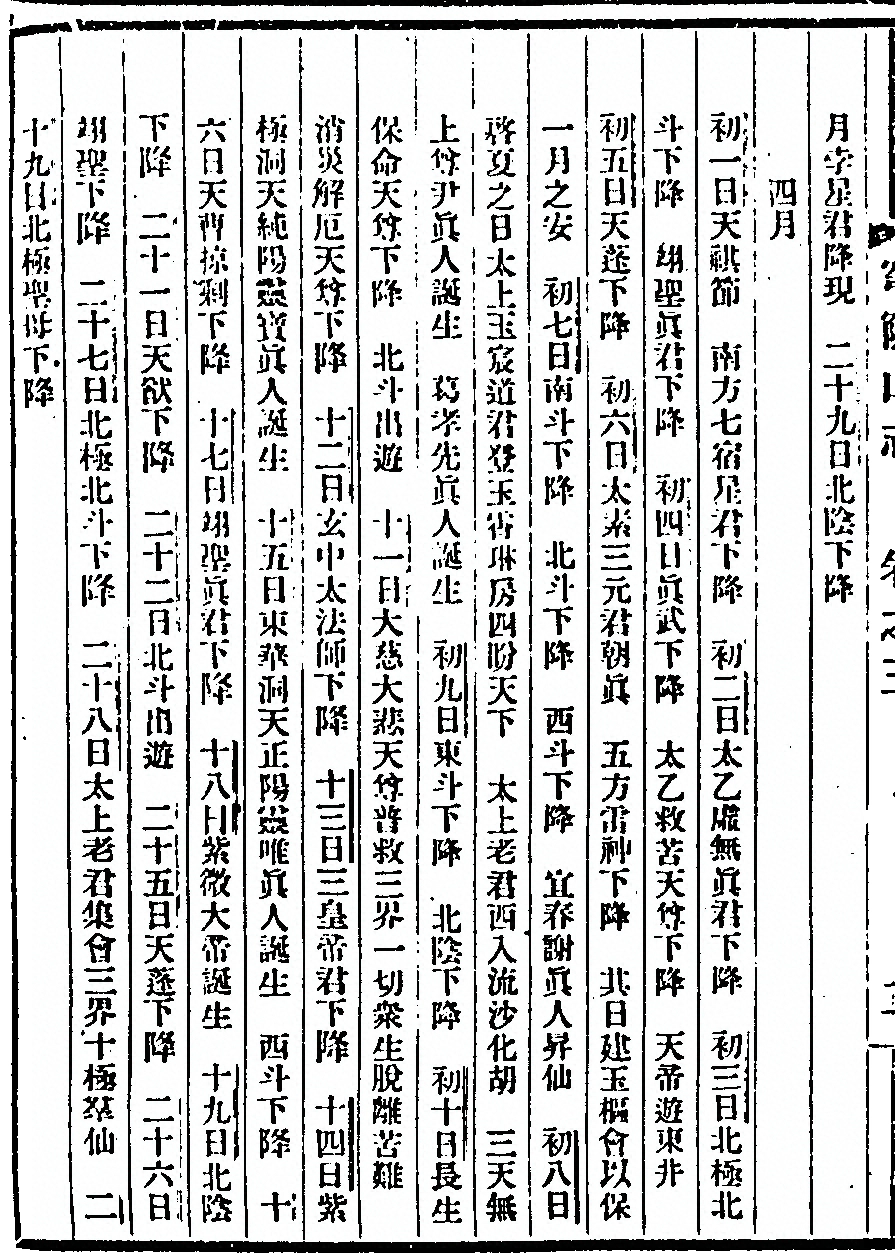 月孛星君降現　二十九日北陰下降
四月
初一日天祺節　南方七宿星君下降　初二日太乙虛無眞君下降　初三日北極北
斗下降　翊聖眞君下降　初四日眞武下降　太乙救苦天尊下降　天帝遊東井
初五日天蓬下降　初六日太素三元君朝眞　五方雷神下降　其日建玉樞會以保
一月之安　初七日南斗下降　北斗下降　西斗下降　宜春謝眞人昇仙　初八日
啓夏之日太上玉宸道君登玉霄琳房四盼天下　太上老君西入流沙化胡　三天無
上尊尹眞人誕生　葛孝先眞人誕生　初九日東斗下降　北陰下降　初十日長生
保命天尊下降　北斗出遊　十一日大慈大悲天尊普救三界一切衆生脫離苦難
消災解厄天尊下降　十二日玄中太法師下降　十三日三皇帝君下降　十四日紫
極洞天純陽靈寶眞人誕生　十五日東華洞天正陽靈唯眞人誕生　西斗下降　十
六日天曹掠剩下降　十七日翊聖眞君下降　十八日紫微大帝誕生　十九日北陰
下降　二十一日天猷下降　二十二日北斗出遊　二十五日天蓬下降　二十六日
翊聖下降　二十七日北極北斗下降　二十八日太上老君集會三界十極羣仙　二
十九日北極聖母下降